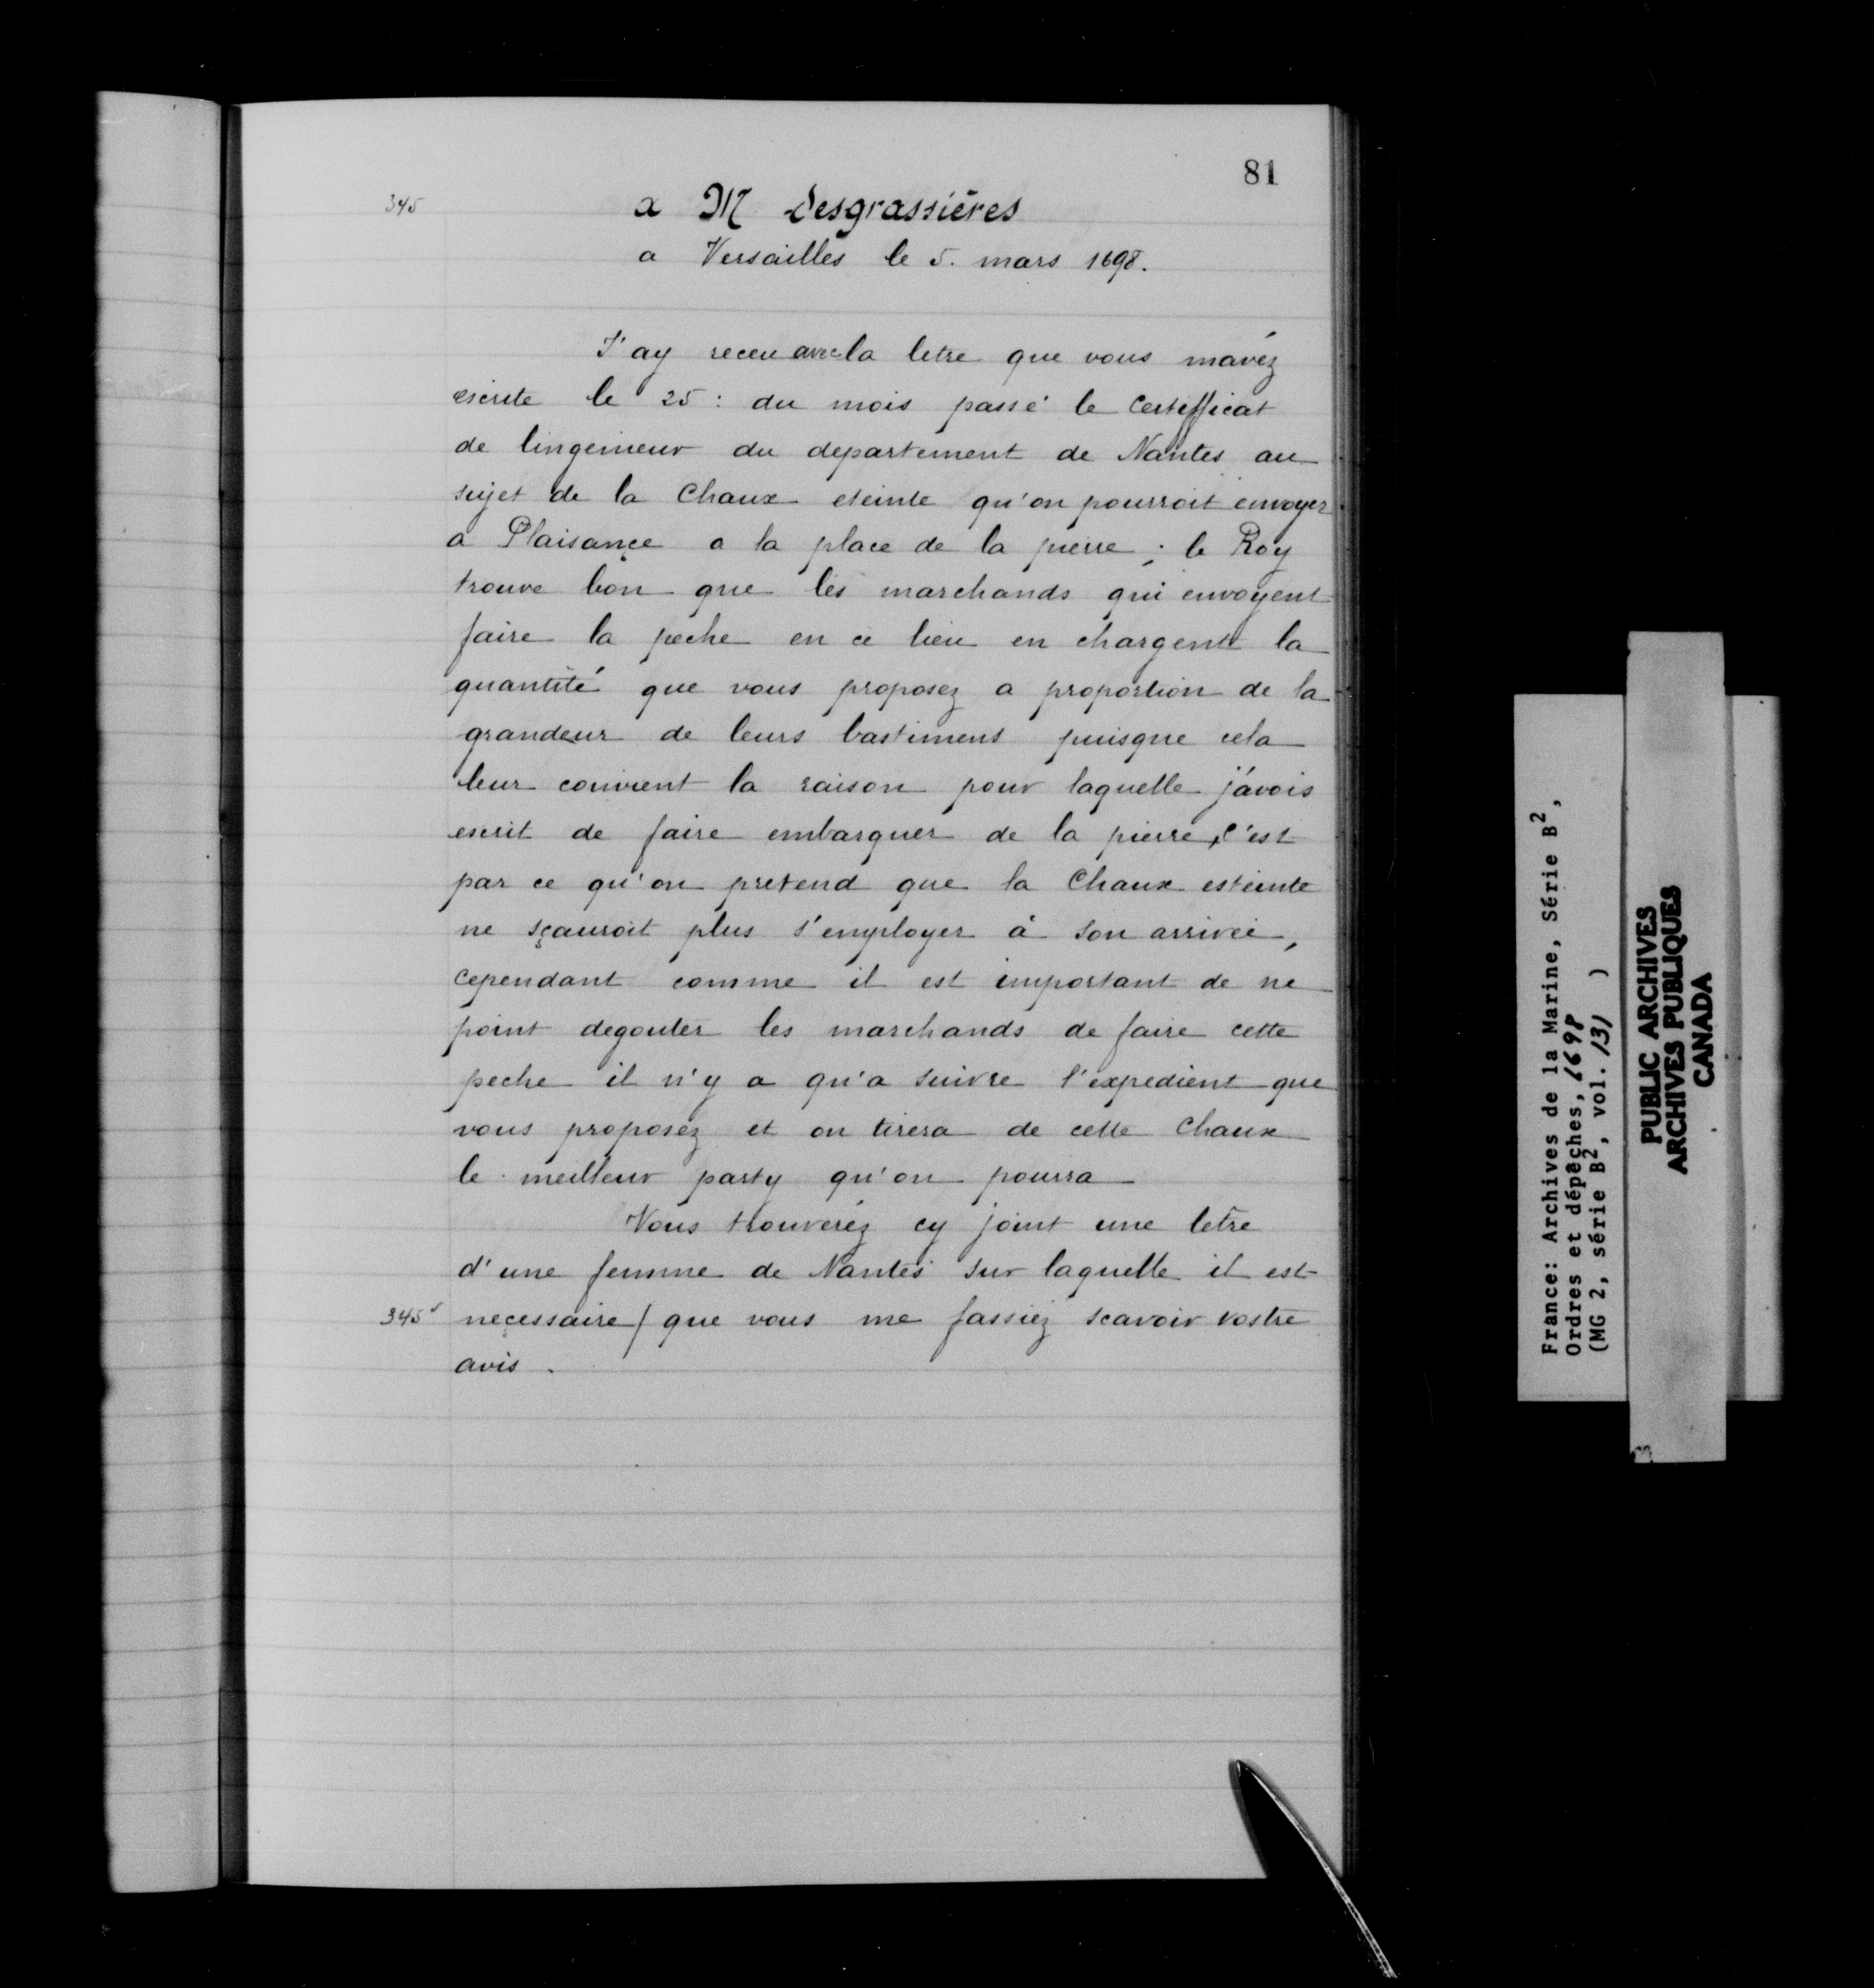 81
345
a M Desgrassières
a Versailles le 5. mars 1698.
J'ay receu avec la letre que vous mavéz
escrite le 25: du mois passé le certifficat
de lingenieur du departement de Nantes au
sujet de la Chaux eteinte qu'on pourroit envoyer
a Plaisançe a la place de la pierre; le Roy
trouve bon que les marchands qui envoyent
faire la peche en ce lieu en chargent la
quantité que vous proposez a proportion de la
grandeur de leurs bastimens puisque cela
leur convient la raison pour laquelle j'avois
escrit de faire embarquer de la pierre, c'est
par ce qu'on pretend que la Chaux esteinte
ne sçauroit plus s'employer à son arrivée,
cependant comme il est important de ne
point degouter les marchands de faire cette
peche il n'y a qu'a suivre l'expedient que
vous proposez et on tirera de cette Chaux
le meilleur party qu'on pourra
Vous trouveréz cy joint une letre
d'une femme de Nantes sur laquelle il est
345v neçessaire / que vous me fassiez scavoir vostre
avis.
France: Archives de la Marine, Série B2,
Ordres et dépêches, 1698
(MG 2, série B2, vol. 131 )
PUBLIC ARCHIVES
ARCHIVES PUBLIQUES
CANADA